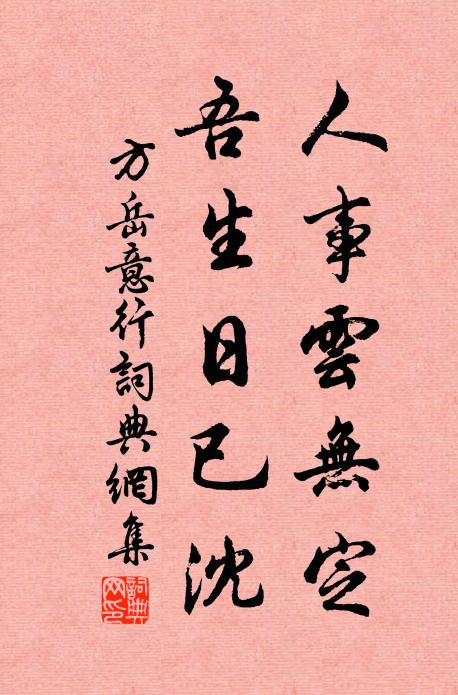 人事雲無定
吾生日已沈
方岳意行詞典網集
詞典網印